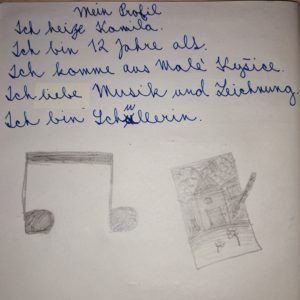 Mein Profil
Ich heize Kamila.
Ich bin 12 Jahre alt.
Ich komme aus Malé Kyšice.
Ich liebe Musik und Zeichnung.
Ich bin Schüllerin.